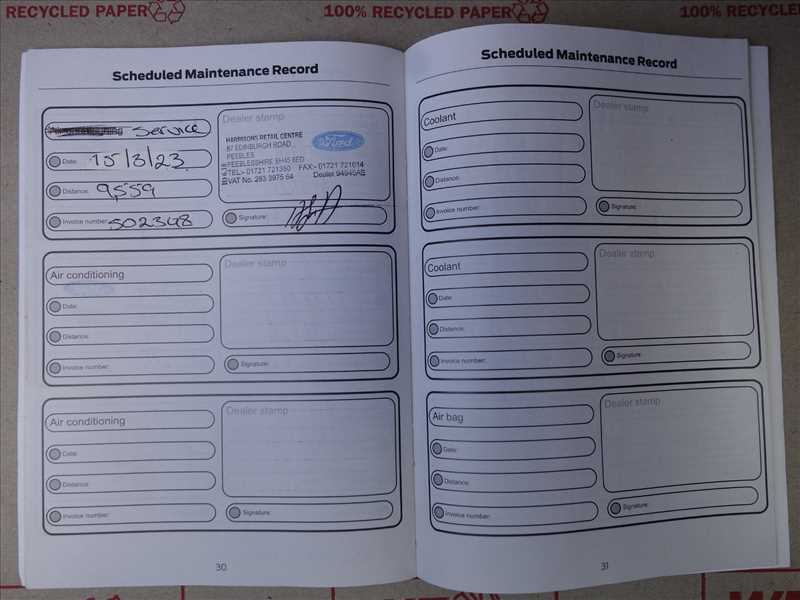 RECYCLED PAPER
100% RECYCLED PAPER
100% RECYCLED PAPER
Scheduled Maintenance Record
Service
Date: 15/3/23
Distance: 9,559
Invoice number: 502348
Dealer stamp
HARRISONS RETAIL CENTRE
87 EDINBURGH ROAD
PEEBLES
PEEBLESSHIRE EH45 8ED
TEL:- 01721 721350 FAX:- 01721 721614
VAT No. 293 3975 64 Dealer 94945AB
Ford
Signature:
Air conditioning
Date:
Distance:
Invoice number:
Dealer stamp
Signature:
Air conditioning
Date:
Distance:
Invoice number:
Dealer stamp
Signature:
30
Scheduled Maintenance Record
Coolant
Date:
Distance:
Invoice number:
Dealer stamp
Signature:
Coolant
Date:
Distance:
Invoice number:
Dealer stamp
Signature:
Air bag
Date:
Distance:
Invoice number:
Dealer stamp
Signature:
31